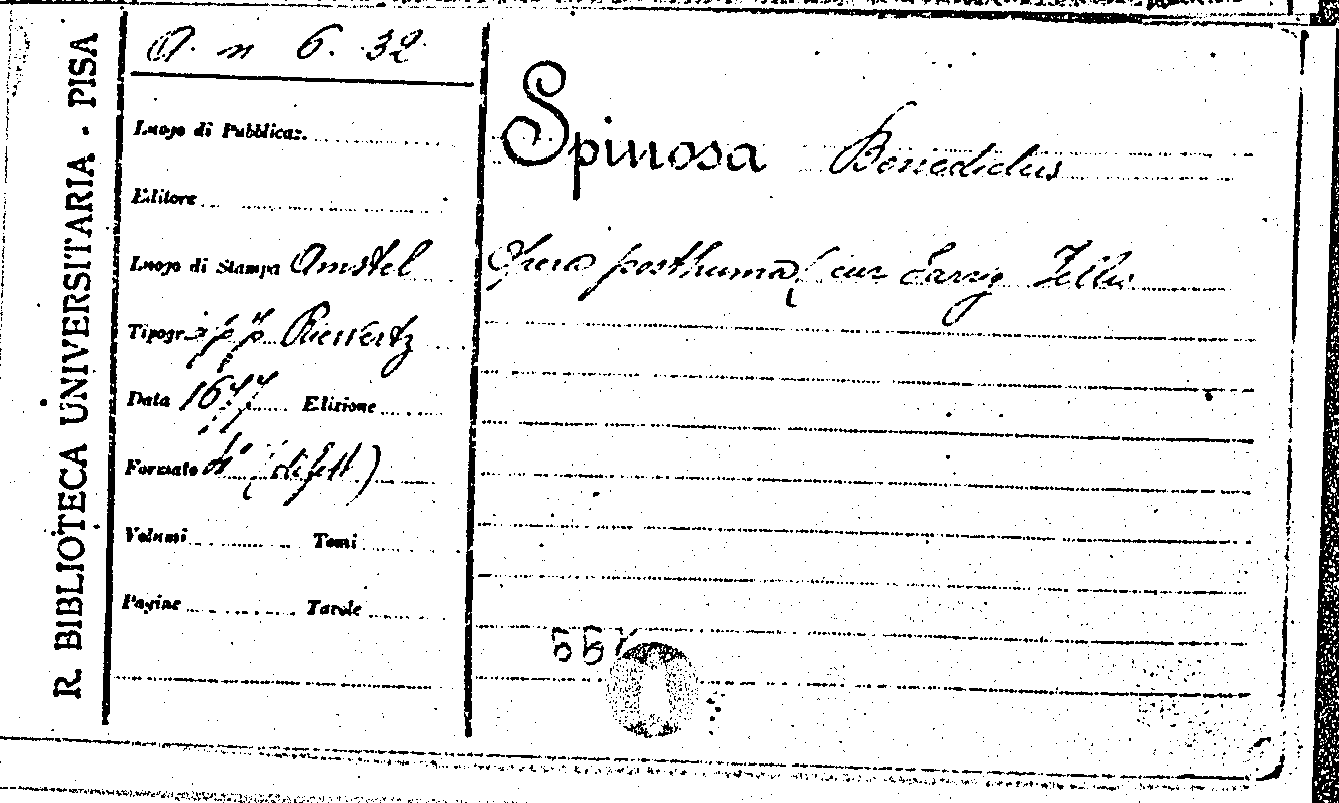 R. BIBLIOTECA UNIVERSITARIA - PISA
A. n 6. 32
Luogo di Pubblicaz.
Editore
Luogo di Stampa Amstel
Tipogr. Rieuwertz
Data 1677 Edizione
Formato 4° (difett)
Volumi Tomi
Pagine Tavole
Spinosa Benedictus
Opera posthuma (cur Jarrig Jelles